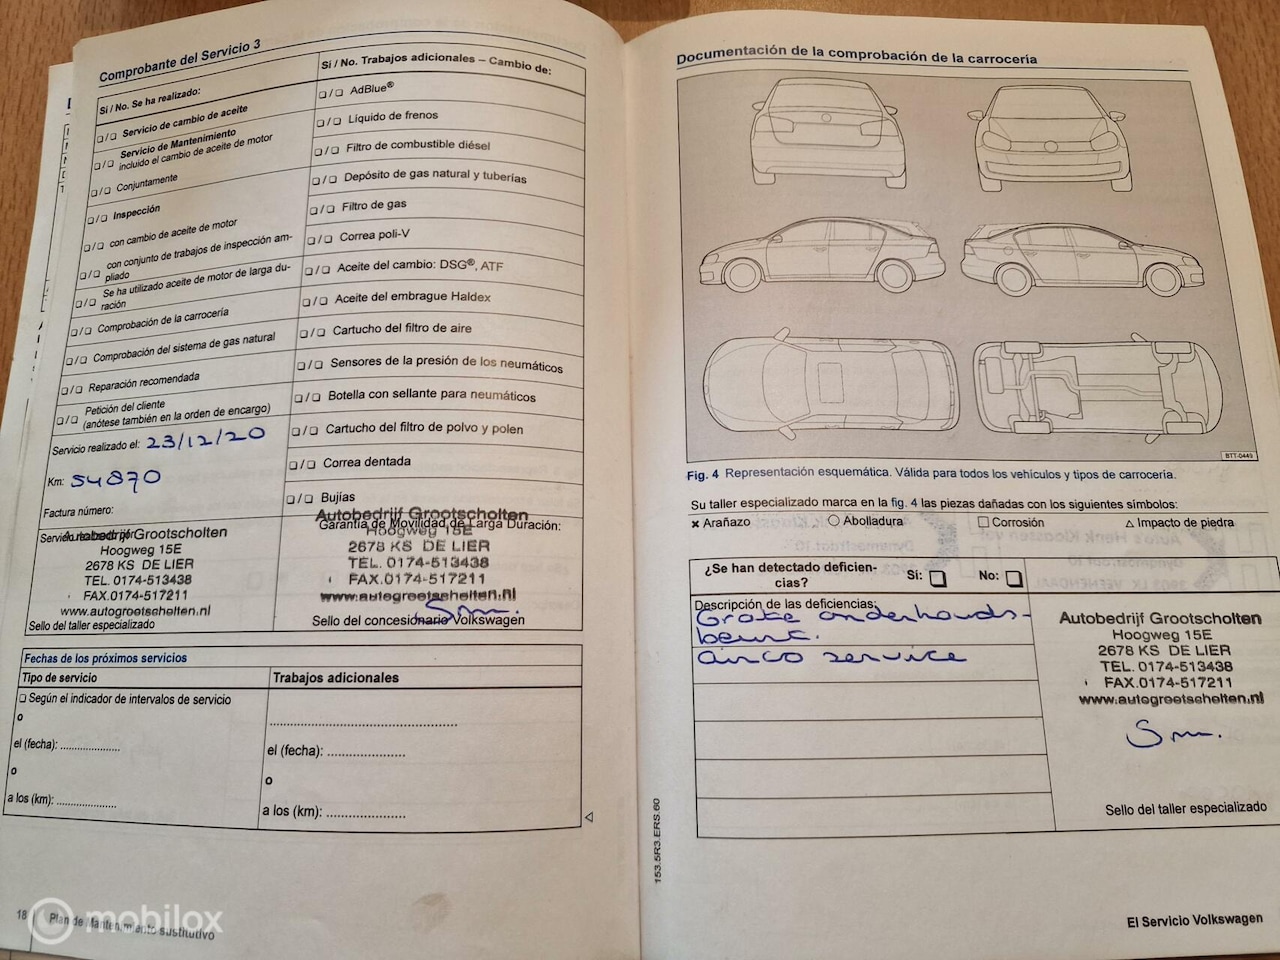 Comprobante del Servicio 3
Sí / No. Se ha realizado:
❏ / ❏ Servicio de cambio de aceite
❏ / ❏ Servicio de Mantenimiento
incluido el cambio de aceite de motor
❏ / ❏ Conjuntamente
❏ / ❏ Inspección
❏ / ❏ con cambio de aceite de motor
❏ / ❏ con conjunto de trabajos de inspección am-
pliado
❏ / ❏ Se ha utilizado aceite de motor de larga du-
ración
❏ / ❏ Comprobación de la carrocería
❏ / ❏ Comprobación del sistema de gas natural
❏ / ❏ Reparación recomendada
❏ / ❏ Petición del cliente
(anótese también en la orden de encargo)
Servicio realizado el: 23/12/20
Km: 54870
Factura número:
Autobedrijf Grootscholten
Hoogweg 15E
2678 KS DE LIER
TEL. 0174-513438
FAX.0174-517211
www.autogrootscholten.nl
Sello del taller especializado
Sí / No. Trabajos adicionales – Cambio de:
❏ / ❏ AdBlue®
❏ / ❏ Líquido de frenos
❏ / ❏ Filtro de combustible diésel
❏ / ❏ Depósito de gas natural y tuberías
❏ / ❏ Filtro de gas
❏ / ❏ Correa poli-V
❏ / ❏ Aceite del cambio: DSG®, ATF
❏ / ❏ Aceite del embrague Haldex
❏ / ❏ Cartucho del filtro de aire
❏ / ❏ Sensores de la presión de los neumáticos
❏ / ❏ Botella con sellante para neumáticos
❏ / ❏ Cartucho del filtro de polvo y polen
❏ / ❏ Correa dentada
❏ / ❏ Bujías
Autobedrijf Grootscholten
Garantía de Movilidad de Larga Duración:
Hoogweg 15E
2678 KS DE LIER
TEL. 0174-513438
FAX.0174-517211
www.autogrootscholten.nl
Sello del concesionario Volkswagen
Fechas de los próximos servicios
Tipo de servicio
❏ Según el indicador de intervalos de servicio
o
el (fecha): .....................
o
a los (km): .....................
Trabajos adicionales
el (fecha): .....................
o
a los (km): .....................
18
Plan de Mantenimiento sustitutivo
mobilox
Documentación de la comprobación de la carrocería
BTT-0449
Fig. 4 Representación esquemática. Válida para todos los vehículos y tipos de carrocería.
Su taller especializado marca en la fig. 4 las piezas dañadas con los siguientes símbolos:
× Arañazo ○ Abolladura □ Corrosión △ Impacto de piedra
¿Se han detectado deficien-
cias? Sí: ❏ No: ❏
Descripción de las deficiencias:
Grote onderhouds-
beurt.
airco service
Autobedrijf Grootscholten
Hoogweg 15E
2678 KS DE LIER
TEL. 0174-513438
FAX.0174-517211
www.autogrootscholten.nl
Sello del taller especializado
153.5R3.ERS.60
El Servicio Volkswagen